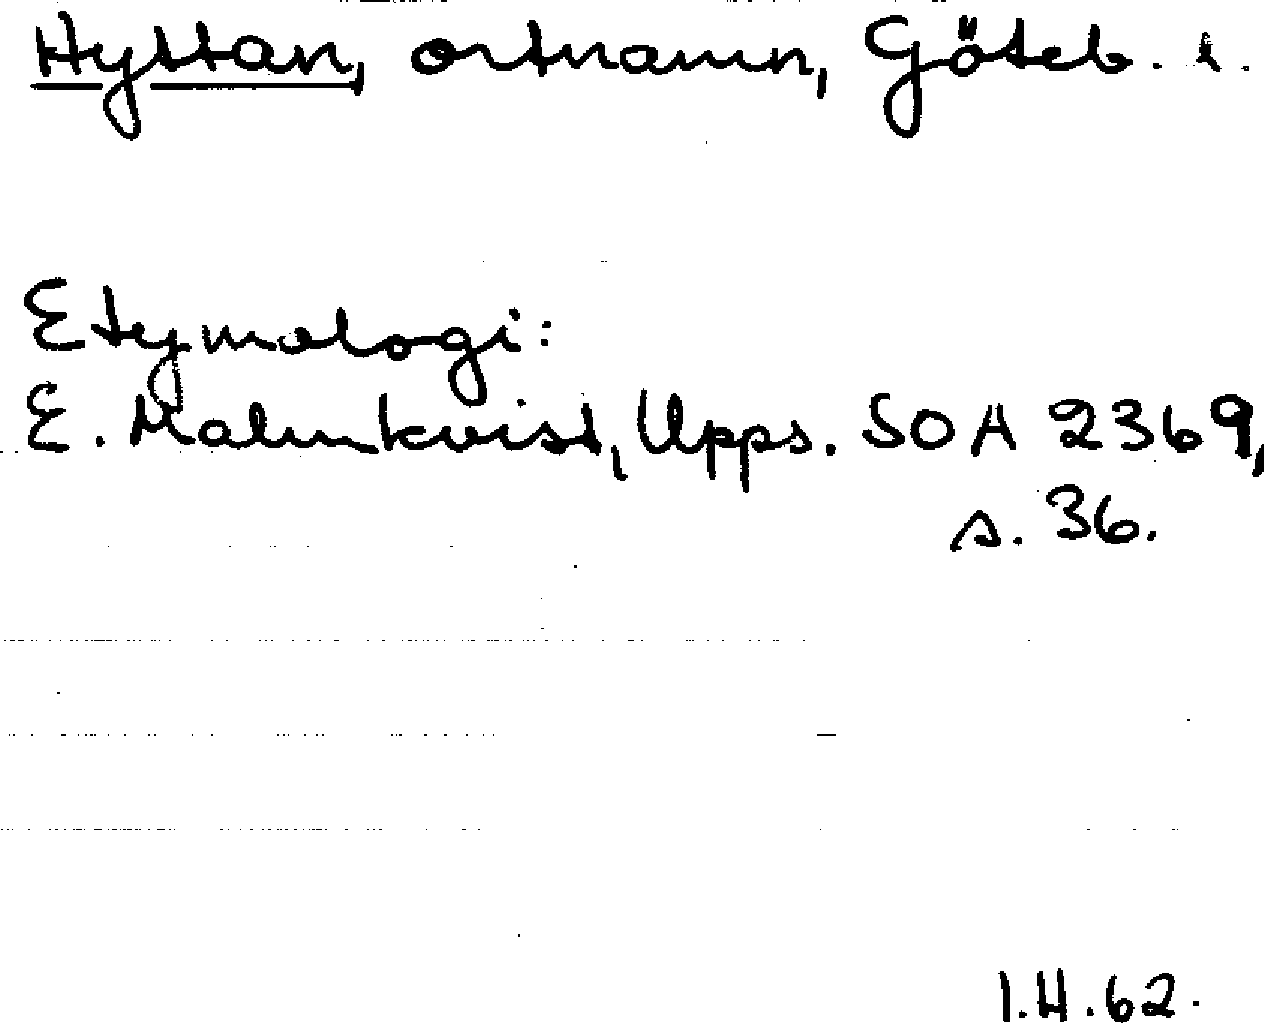 Hyttan, ortnamn, Göteb. l.
Etymologi:
E. Malmkvist, Upps. SOA 2369,
s. 36.
I.H.62.